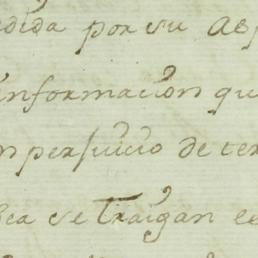 dida por su
informacion qu
n perjuicio de ter
sea se Traigan